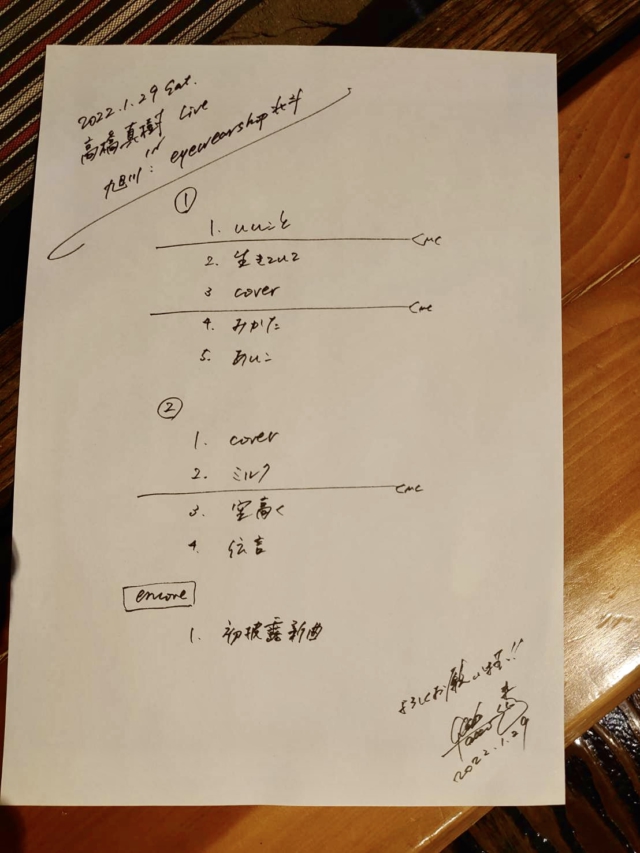 2022.1.29 Sat.
高橋真樹 Live
in
旭川: eyewearshop 北斗
①
1. いいこと
<MC
2. 生きていて
3 cover
<MC
4. みかた
5. あいこ
②
1. cover
2. ミルク
<MC
3. 空高く
4. 伝言
encore
1. 初披露新曲
よろしくお願いします!!
2022.1.29